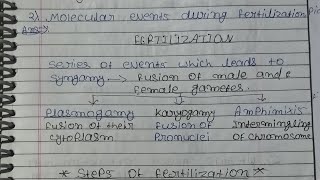 3) Molecular events during fertilization
Ans:
FERTILIZATION
series of events which leads to
syngamy → fusion of male and
female gametes.
Plasmogamy Karyogamy Amphimixis
fusion of their fusion of Intermingling
cytoplasm Pronuclei of chromosome
* Steps of fertilization *